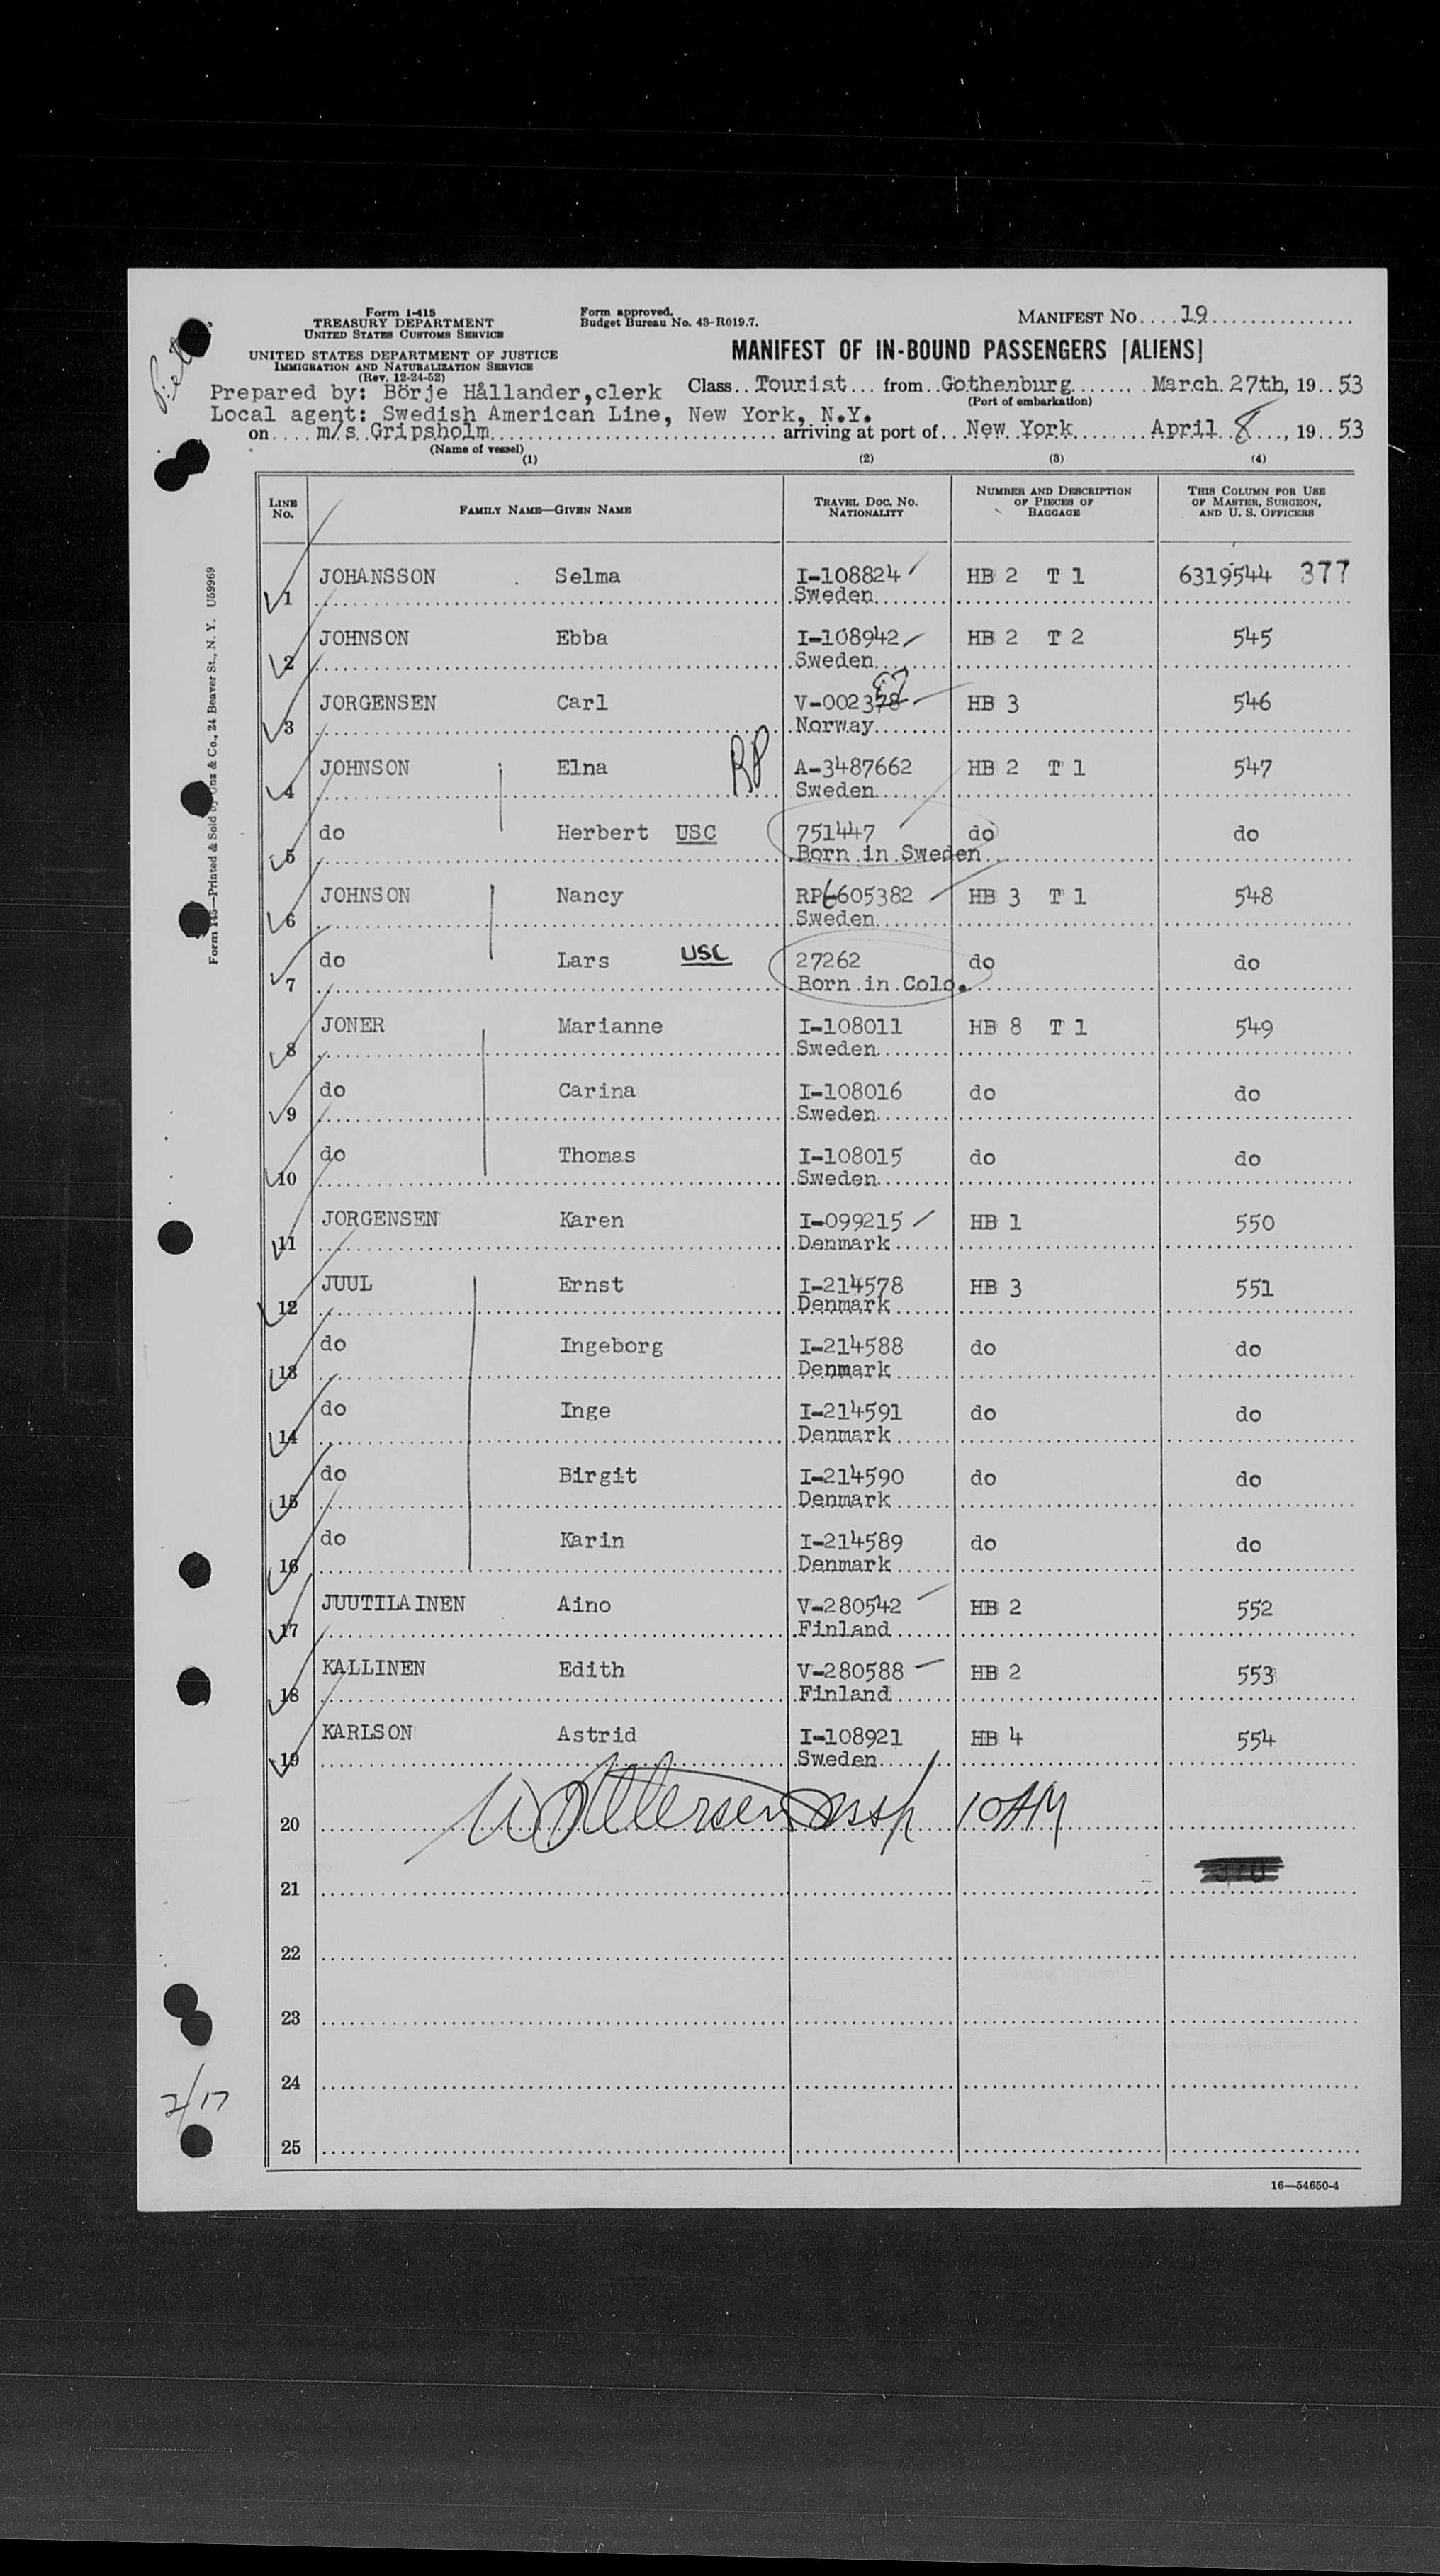 Form I-415
TREASURY DEPARTMENT
UNITED STATES CUSTOMS SERVICE
UNITED STATES DEPARTMENT OF JUSTICE
IMMIGRATION AND NATURALIZATION SERVICE
(Rev. 12-24-52)
Form approved.
Budget Bureau No. 43-R019.7.
MANIFEST No....19
MANIFEST OF IN-BOUND PASSENGERS [ALIENS]
Prepared by: Börje Hållander,clerk
Class..Tourist...from..Gothenburg......, March 27th, 19..53
(Port of embarkation)
Local agent: Swedish American Line, New York, N.Y.
on....m/s Gripsholm....arriving at port of..New York.......April 8..., 19..53
(Name of vessel)
(1) (2) (3) (4)
LINE No. FAMILY NAME—GIVEN NAME TRAVEL DOC. NO. NATIONALITY NUMBER AND DESCRIPTION OF PIECES OF BAGGAGE THIS COLUMN FOR USE OF MASTER, SURGEON, AND U. S. OFFICERS
JOHANSSON Selma I-108824 HB 2 T 1 6319544 377
1 Sweden
JOHNSON Ebba I-108942 HB 2 T 2 545
2 Sweden
87
JORGENSEN Carl V-002378 HB 3 546
3 Norway
JOHNSON Elna RP A-3487662 HB 2 T 1 547
4 Sweden
do Herbert USC 751447 do do
5 Born in Sweden
JOHNSON Nancy RP6605382 HB 3 T 1 548
6 Sweden
do Lars USC 27262 do do
7 Born in Colo.
JONER Marianne I-108011 HB 8 T 1 549
8 Sweden
do Carina I-108016 do do
9 Sweden
do Thomas I-108015 do do
10 Sweden
JORGENSEN Karen I-099215 HB 1 550
11 Denmark
JUUL Ernst I-214578 HB 3 551
12 Denmark
do Ingeborg I-214588 do do
13 Denmark
do Inge I-214591 do do
14 Denmark
do Birgit I-214590 do do
15 Denmark
do Karin I-214589 do do
16 Denmark
JUUTILAINEN Aino V-280542 HB 2 552
17 Finland
KALLINEN Edith V-280588 HB 2 553
18 Finland
KARLSON Astrid I-108921 HB 4 554
19 Sweden
20 10AM
21
22
23
24
25
2/17
16—54650-4
Form 145—Printed & Sold by Unz & Co., 24 Beaver St., N. Y. U59969